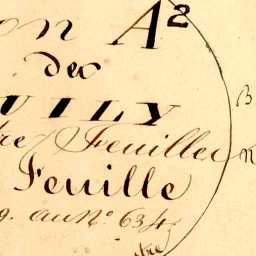 on A2
des
UILY
tre Feuilles
Feuille
9. au No. 634
B